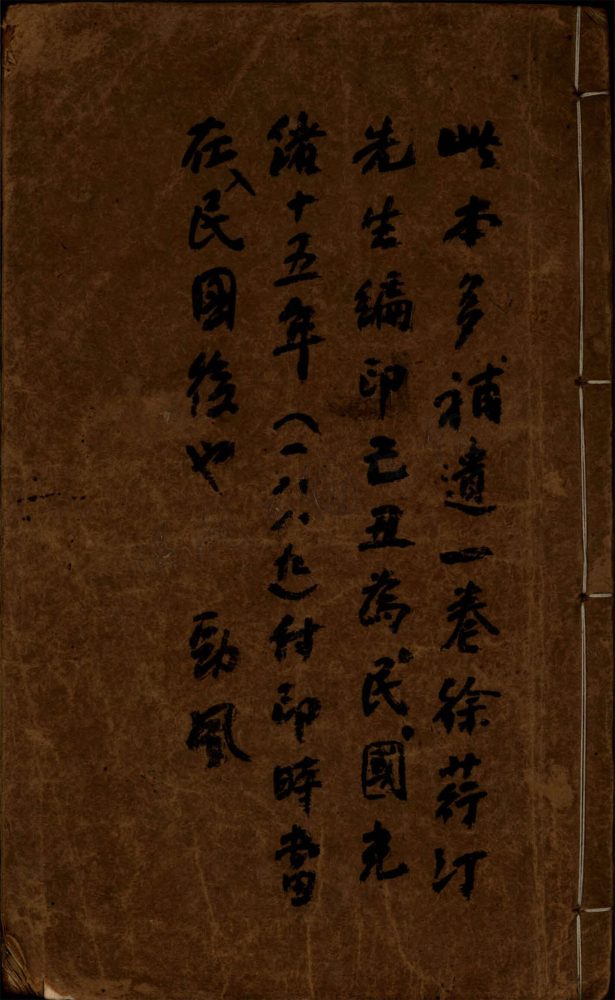 此本多補遺一卷徐荇汀
先生編印己丑為民國光
緒十五年（一八八九）付印時當
在入民國後也 勁風